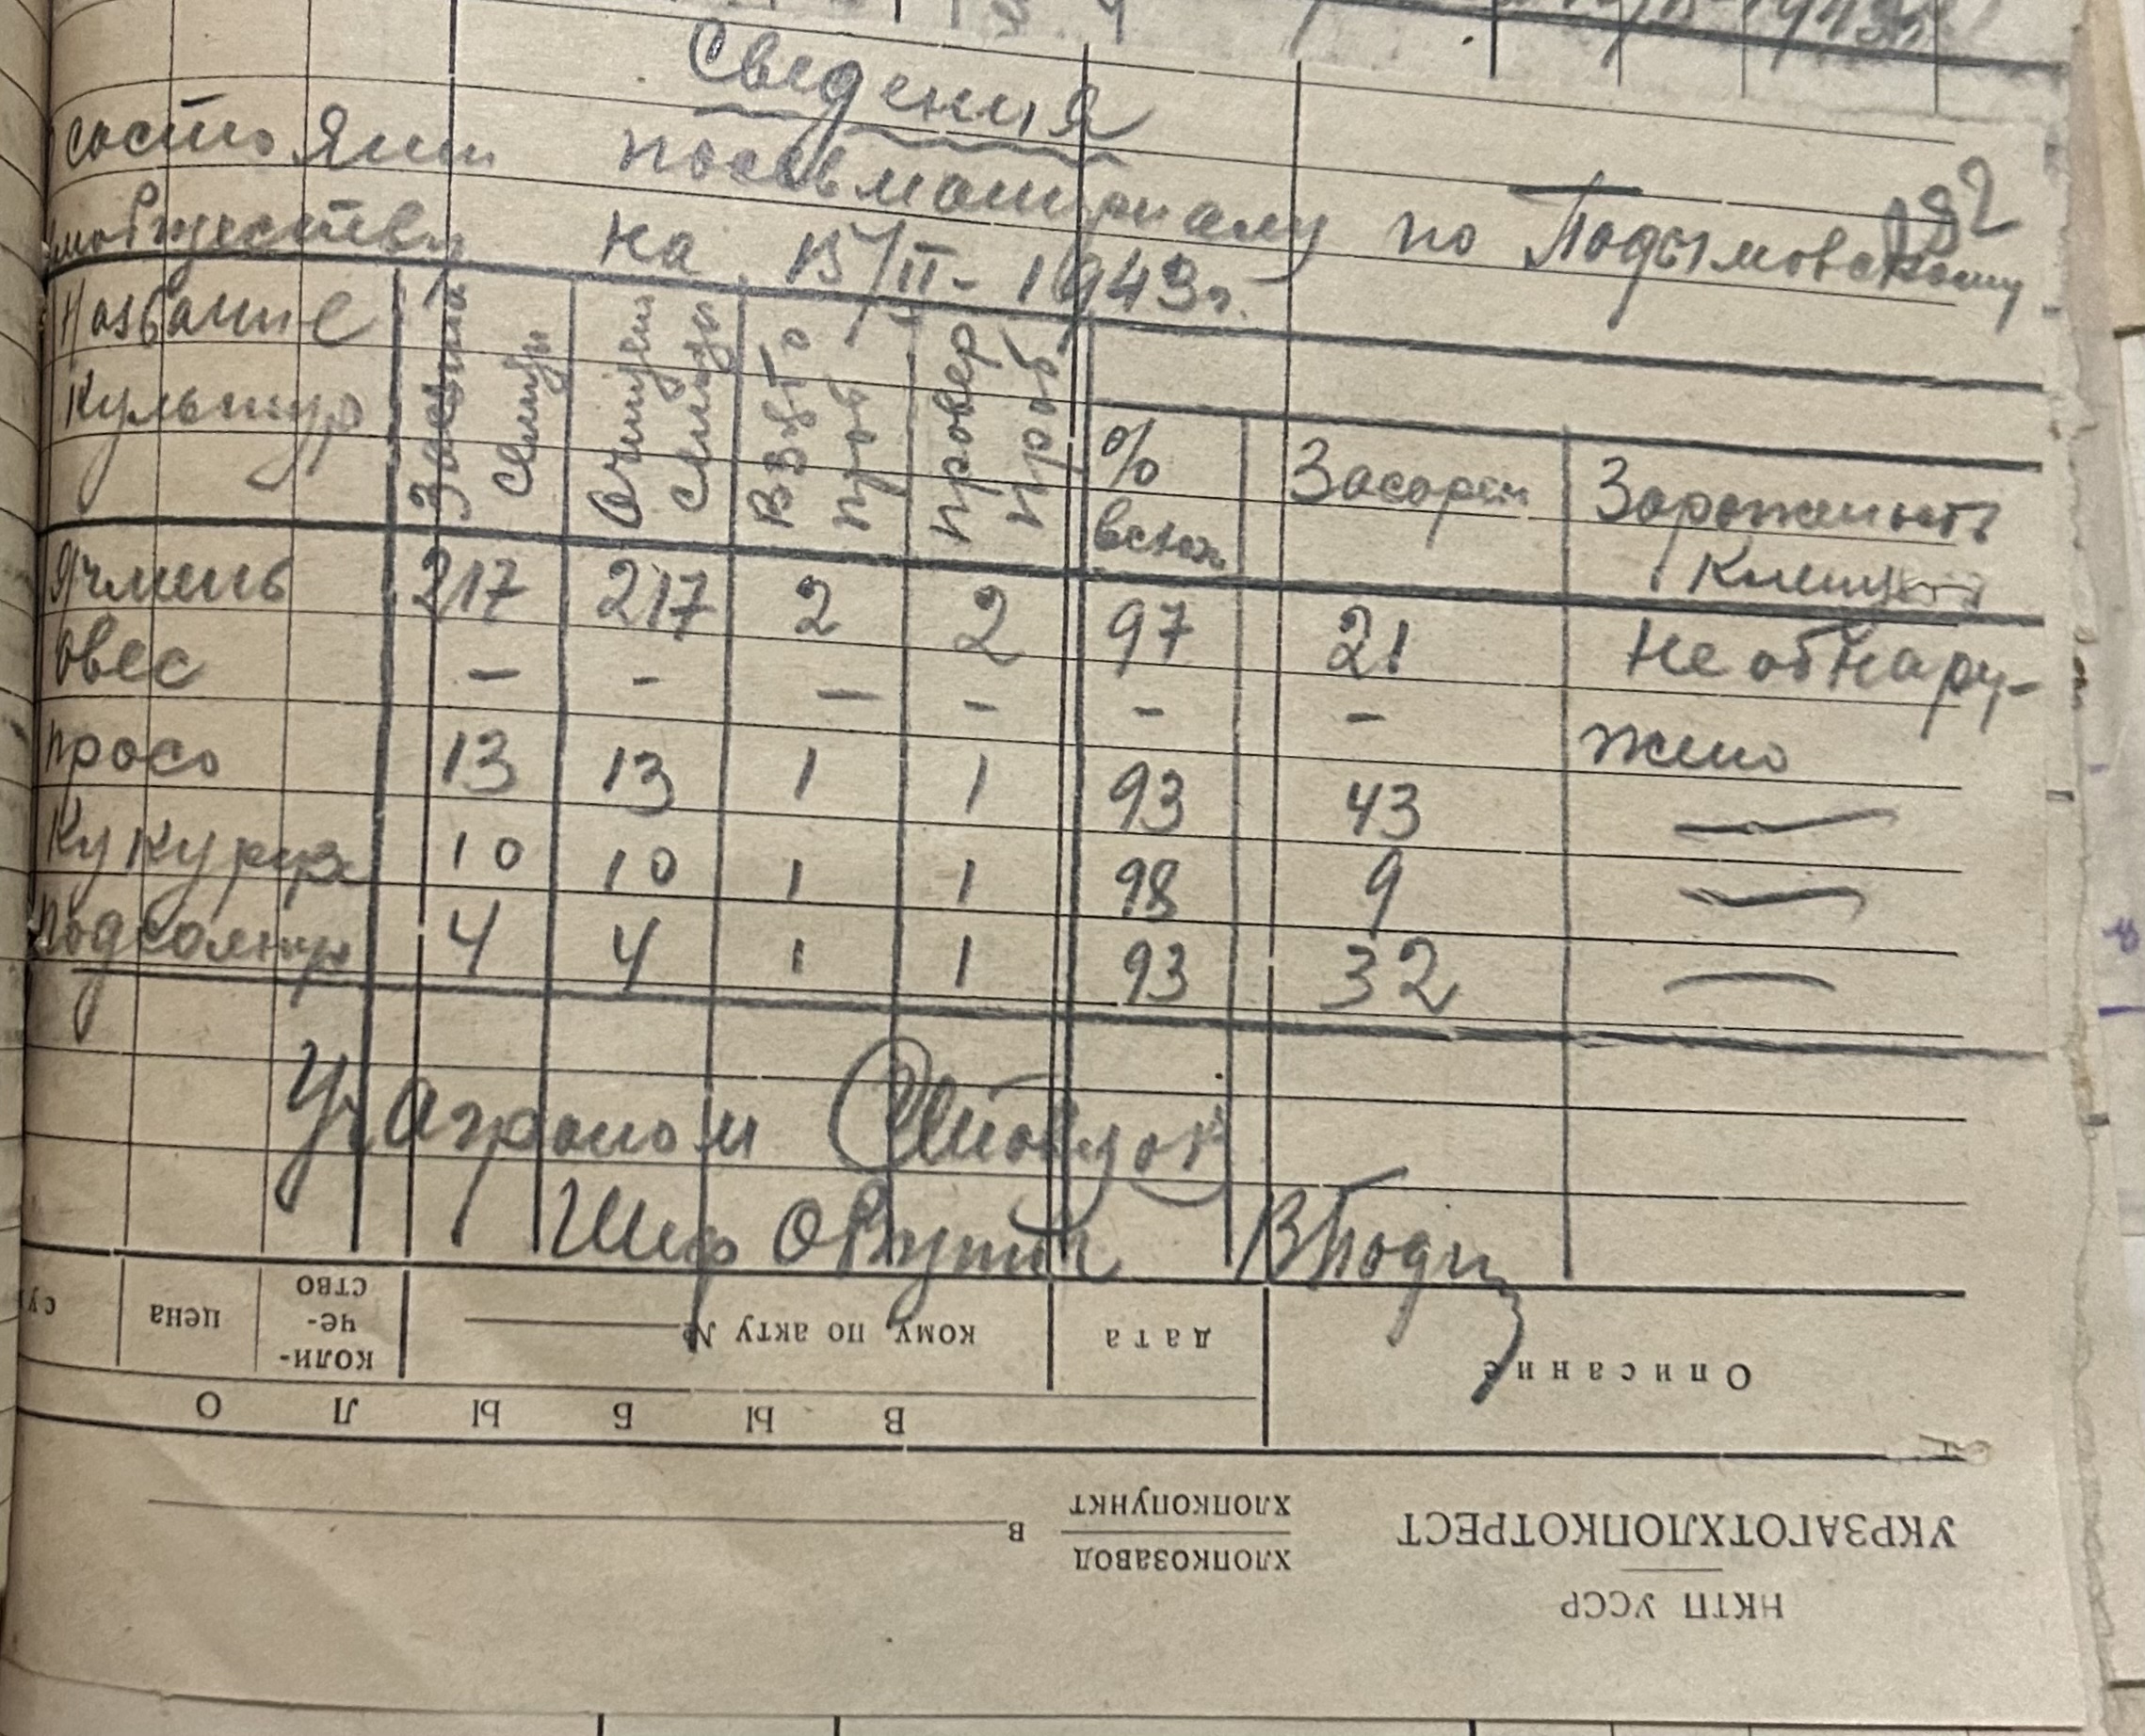 Сведения
состоянии посевматериалу по Подымовскому
на 15/II-1943г.
182
Название культур
Засыпано семян
Очищен семян
Взято проб
Провер проб
% всхож
Засорен
Зараженность Клещом
Ячмень 217 217 2 2 97 21 Не обнару-
жено
Овес – – – – – –
просо 13 13 1 1 93 43 —
Кукуруз 10 10 1 1 98 9 —
подсолнух 4 4 1 1 93 32 —
Уч Агроном
НКТП УССР
УКРЗАГОТХЛОПКОТРЕСТ
ХЛОПКОЗАВОД
ХЛОПКОПУНКТ
в
ВЫБЫЛО
Описание
дата
кому по акту №
коли-
че-
ство
цена
су